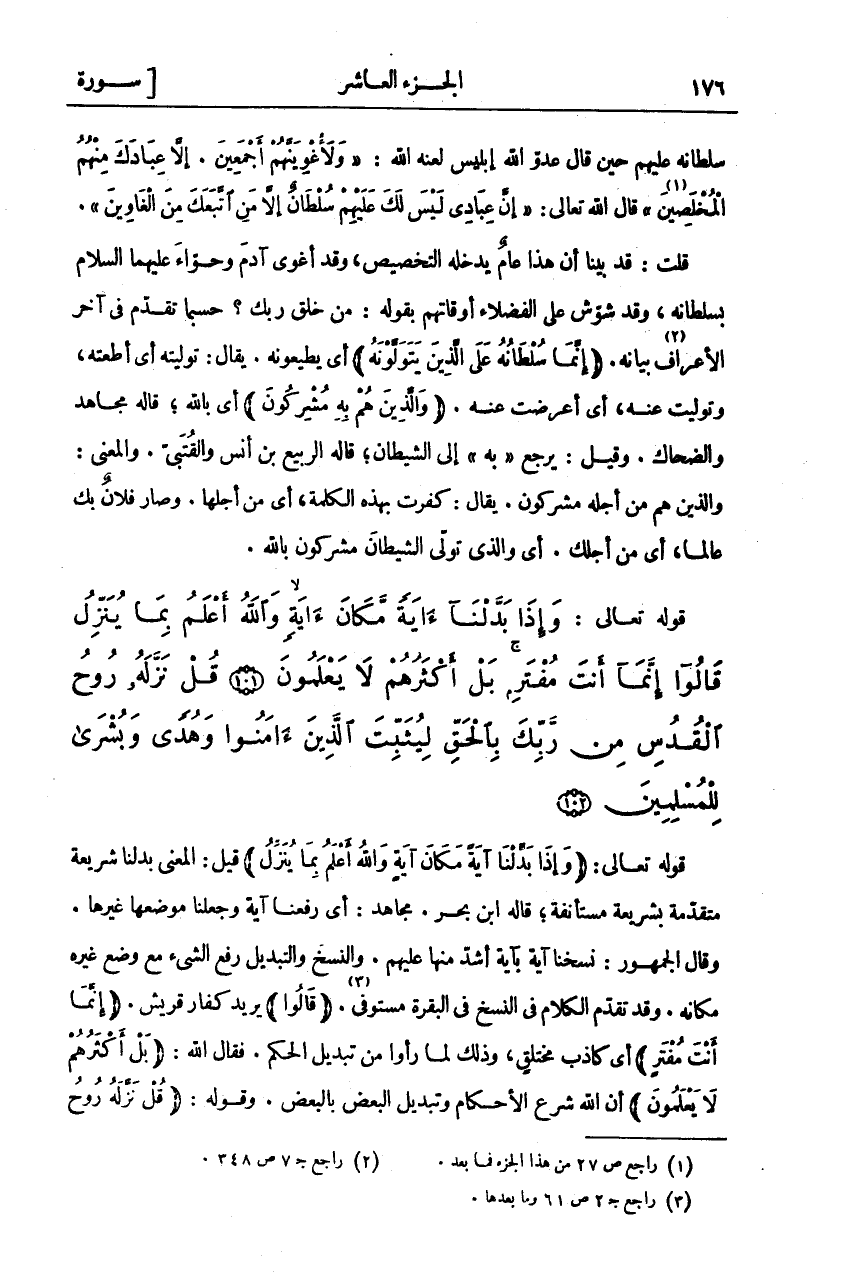 ١٧٦ الجزء العاشر [ سورة
سلطانه عليهم حين قال عدوّ الله إبليس لعنه الله : « وَلَأُغْوِيَنَّهُمْ أَجْمَعِينَ . إلَّا عِبَادَكَ مِنْهُمُ
الْمُخْلَصِينَ(١) » قال الله تعالى: « إنَّ عِبَادِى لَيْسَ لَكَ عَلَيْهِمْ سُلْطَانٌ إلَّا مَنِ ٱتَّبَعَكَ مِنَ الْغَاوِينَ » .
قلت : قد بينا أن هذا عامٌ يدخله التخصيص، وقد أغوى آدمَ وحوّاءَ عليهما السلام
بسلطانه ، وقد شوّش على الفضلاء أوقاتهم بقوله : من خلق ربك ؟ حسبما تقدّم فى آخر
الأعراف(٢) بيانه. ﴿ إِنَّمَا سُلْطَانُهُ عَلَى الَّذِينَ يَتَوَلَّوْنَهُ ﴾ أى يطيعونه . يقال: توليته أى أطعته،
وتوليت عنه، أى أعرضت عنه . ﴿ وَالَّذِينَ هُمْ بِهِ مُشْرِكُونَ ﴾ أى بالله ؛ قاله مجاهد
والضحاك . وقيل : يرجع « به » إلى الشيطان؛ قاله الربيع بن أنس والقُتَبىّ . والمعنى :
والذين هم من أجله مشركون . يقال : كفرت بهذه الكلمة، أى من أجلها . وصار فلانٌ بك
عالما، أى من أجلك . أى والذى تولّى الشيطانَ مشركون بالله .
قوله تعالى : وَإِذَا بَدَّلْنَآ ءَايَةً مَّكَانَ ءَايَةٍ ۙ وَٱللَّهُ أَعْلَمُ بِمَا يُنَزِّلُ
قَالُوٓا إِنَّمَآ أَنتَ مُفْتَرٍ ۚ بَلْ أَكْثَرُهُمْ لَا يَعْلَمُونَ ﴿١٠١﴾ قُلْ نَزَّلَهُۥ رُوحُ
ٱلْقُدُسِ مِن رَّبِّكَ بِٱلْحَقِّ لِيُثَبِّتَ ٱلَّذِينَ ءَامَنُوا وَهُدًى وَبُشْرَىٰ
لِلْمُسْلِمِينَ ﴿١٠٢﴾
قوله تعالى: ﴿ وَإِذَا بَدَّلْنَا آيَةً مَكَانَ آيَةٍ وَاللهُ أَعْلَمُ بِمَا يُنَزِّلُ ﴾ قيل: المعنى بدلنا شريعة
متقدّمة بشريعة مستأنفة ؛ قاله ابن بحر . مجاهد : أى رفعنا آية وجعلنا موضعها غيرها .
وقال الجمهور : نسخنا آية بآية أشدّ منها عليهم . والنسخ والتبديل رفع الشىء مع وضع غيره
مكانه . وقد تقدّم الكلام فى النسخ فى البقرة مستوفى(٣) . ﴿ قَالُوا ﴾ يريد كفار قريش . ﴿ إِنَّمَا
أَنْتَ مُفْتَرٍ ﴾ أى كاذب مختلق، وذلك لما رأوا من تبديل الحكم . فقال الله : ﴿ بَلْ أَكْثَرُهُمْ
لَا يَعْلَمُونَ ﴾ أن الله شرع الأحكام وتبديل البعض بالبعض . وقوله : ﴿ قُلْ نَزَّلَهُ رُوحُ
(١) راجع ص ٢٧ من هذا الجزء فما بعد . (٢) راجع ج ٧ ص ٣٤٨ .
(٣) راجع ج ٢ ص ٦١ وما بعدها .